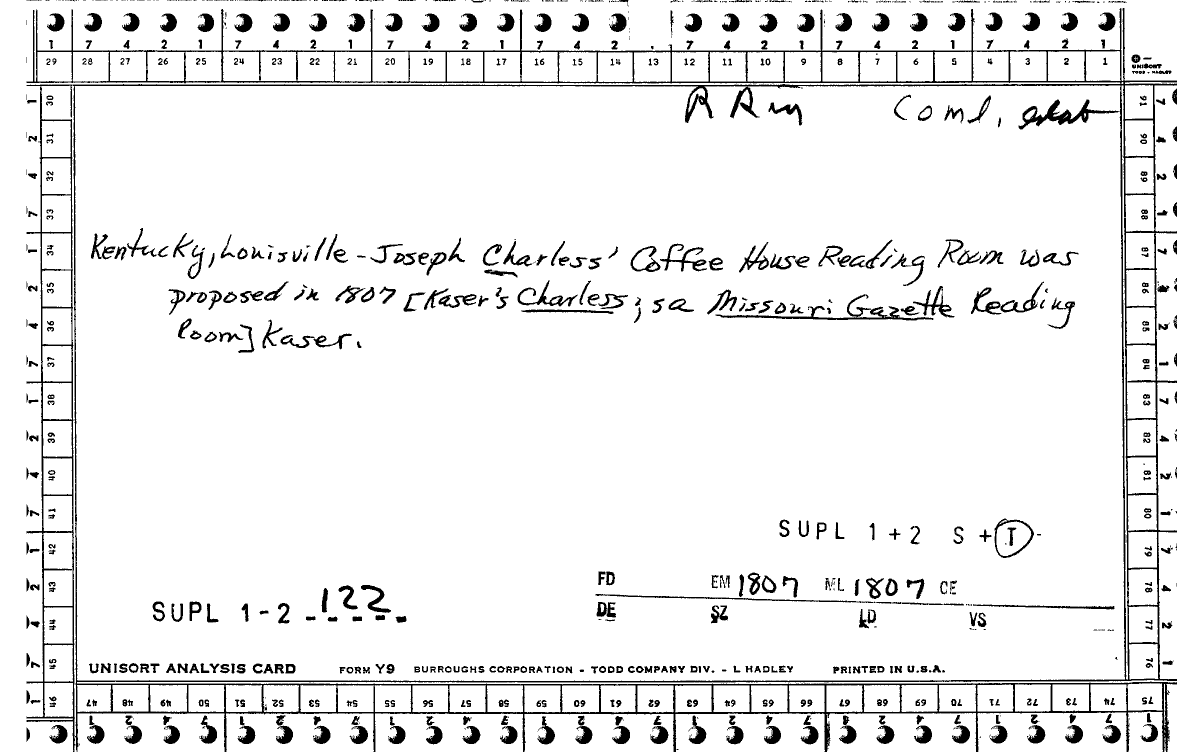 1 7 4 2 1 7 4 2 1 7 4 2 1 7 4 2 . 7 4 2 1 7 4 2 1 7 4 2 1
29 28 27 26 25 24 23 22 21 20 19 18 17 16 15 14 13 12 11 10 9 8 7 6 5 4 3 2 1
UNISORT
TODD - HADLEY
R Rm Coml. estab
Kentucky, Louisville - Joseph Charless' Coffee House Reading Room was
proposed in 1807 [Kaser's Charless; sa Missouri Gazette Reading
Room] Kaser.
SUPL 1+2 S+T
FD EM 1807 ML 1807 CE
SUPL 1-2 122
DE SZ LD VS
UNISORT ANALYSIS CARD FORM Y9 BURROUGHS CORPORATION - TODD COMPANY DIV. - L HADLEY PRINTED IN U.S.A.
30 31 32 33 34 35 36 37 38 39 40 41 42 43 44 45 46
91 90 89 88 87 86 85 84 83 82 81 80 79 78 77 76
47 48 49 50 51 52 53 54 55 56 57 58 59 60 61 62 63 64 65 66 67 68 69 70 71 72 73 74 75